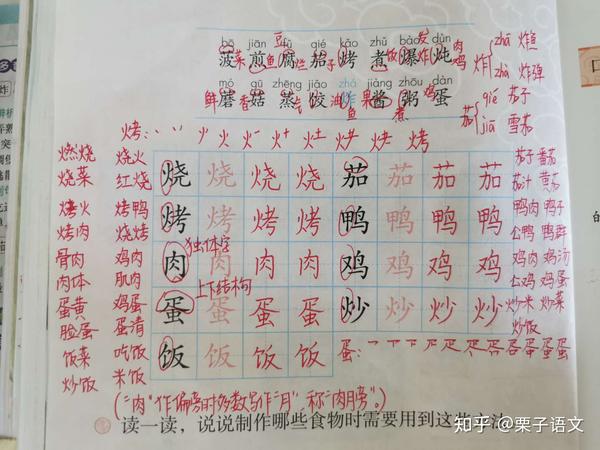 bō jiān fǔ qié kǎo zhǔ bào dùn
菠菜 煎鱼 豆腐 茄子 烤 煮饭 爆炸 炖鸡肉
mó gū zhēng jiǎo zhá jiàng zhōu dàn
鲜蘑 香菇 蒸 饺 油炸鱼 果酱 煮粥 鸡蛋
炸 zhá 炸鱼
zhà 炸弹
茄 qié 茄子
jiā 雪茄
烤:丶 丷 少 火 火一 火十 火土 烤
燃烧 烧火 烧 烧 烧 烧 茄 茄 茄 茄 茄子 番茄
烧菜 红烧 茄汁 黄茄
烤火 烤鸭 烤 烤 烤 烤 鸭 鸭 鸭 鸭 鸭肉 鸭子
烤肉 烧烤 公鸭 鸭群
独体字
骨肉 鸡肉 肉 肉 肉 肉 鸡 鸡 鸡 鸡 鸡肉 鸡汤
肉体 肌肉 公鸡 鸡蛋
上下结构
蛋黄 鸡蛋 蛋 蛋 蛋 蛋 炒 炒 炒 炒 炒米 炒菜
脸蛋 蛋清 炒饭
饭菜 吃饭 饭 饭 饭 饭 蛋:
炒饭 米饭
(“肉”作偏旁时多数写作“月”称“肉月旁”。)
读一读，说说制作哪些食物时需要用到这些方法
知乎 @栗子语文